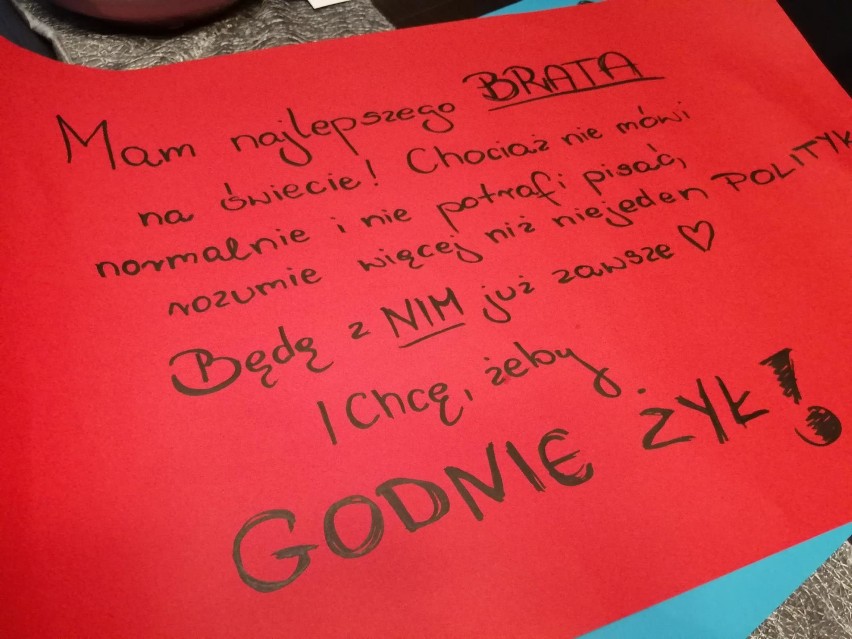 Mam najlepszego BRATA
na świecie! Chociaż nie mówi
normalnie i nie potrafi pisać,
rozumie więcej niż niejeden POLITYK
Będę z NIM już zawsze ♡
I Chcę, żeby
GODNIE ŻYŁ!